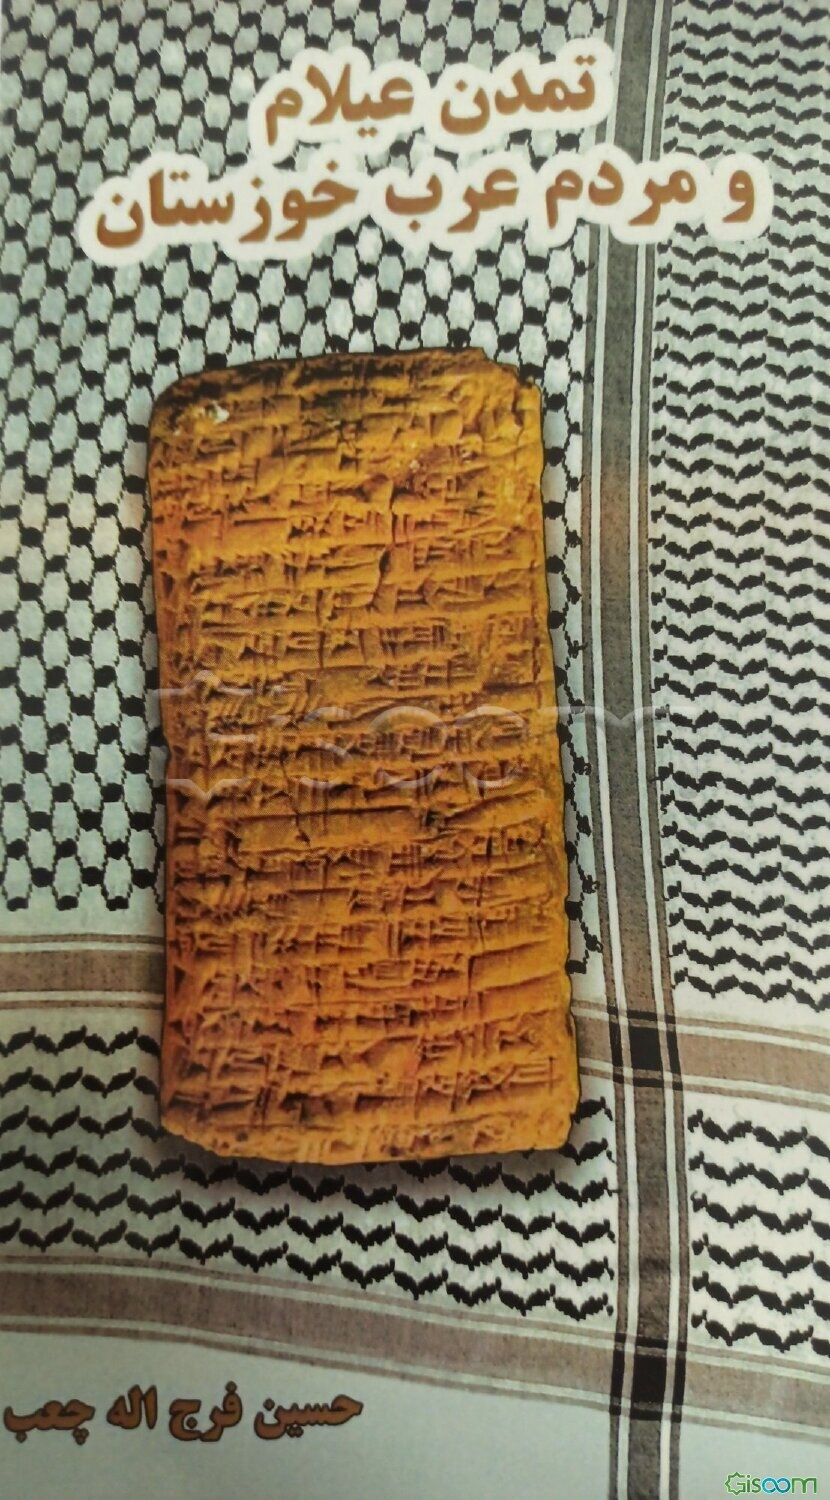 تمدن عیلام
و مردم عرب خوزستان
Gisoom
حسین فرج اله چعب
Gisoom